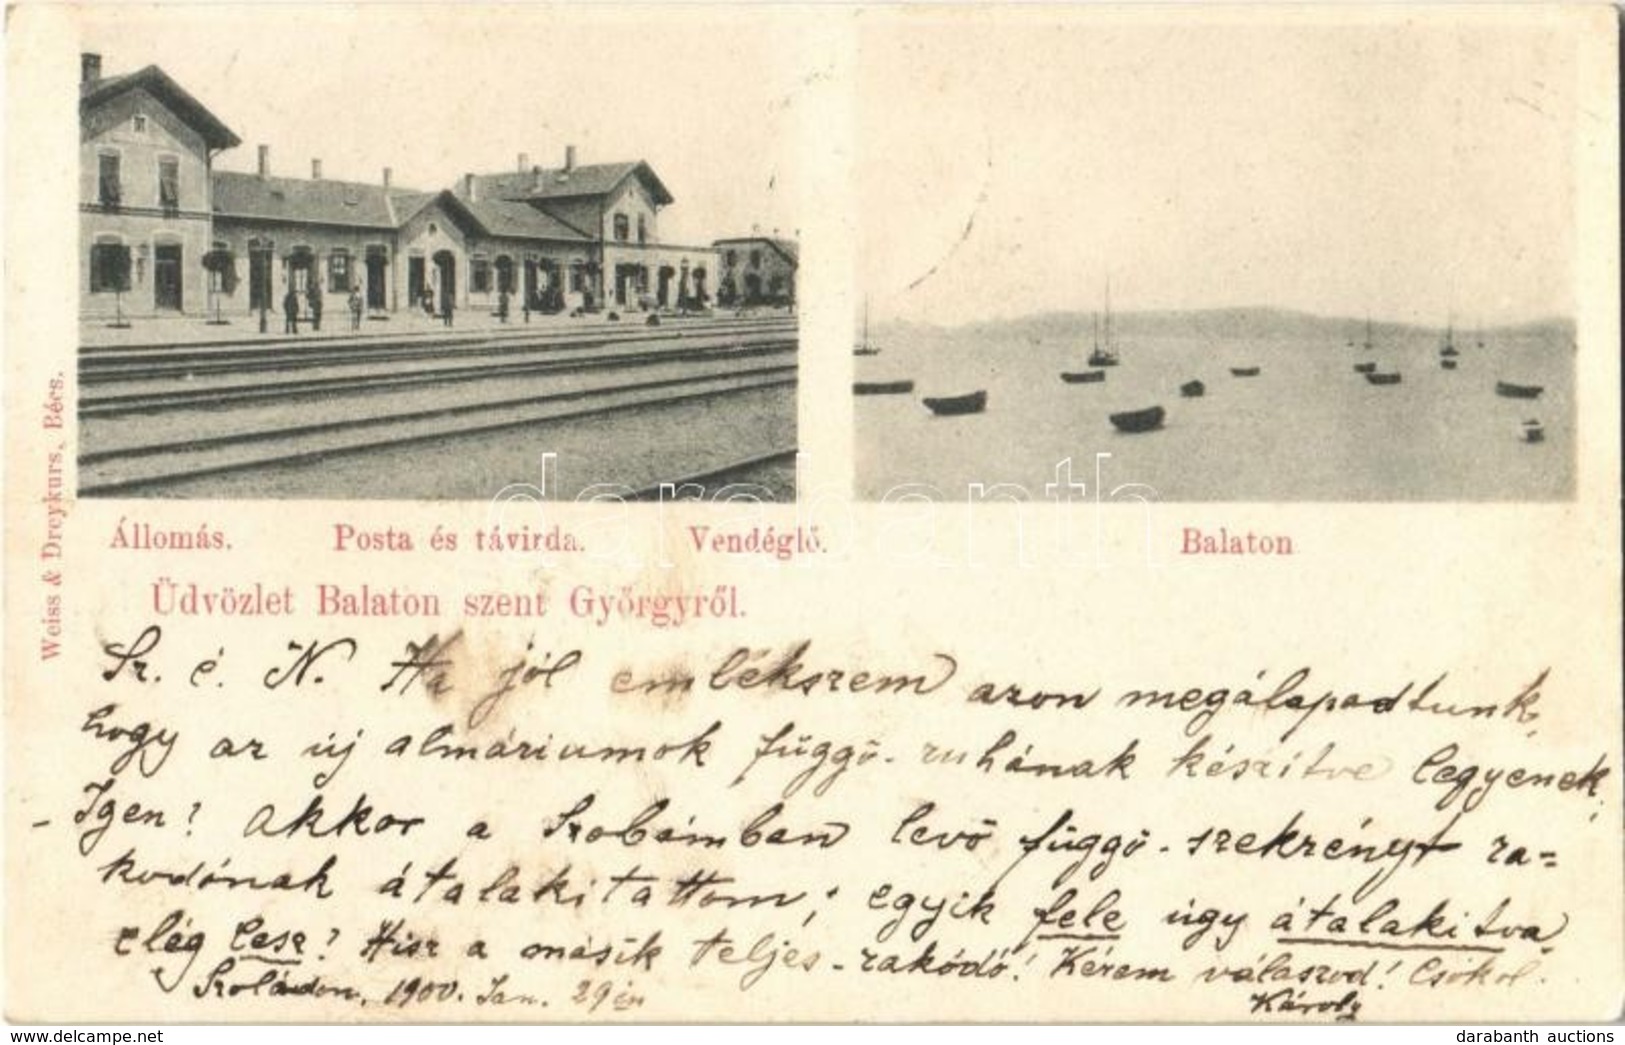 Weiss & Dreykurs, Bécs.
Állomás. Posta és távirda. Vendéglő. Balaton
Üdvözlet Balaton szent Györgyről.
Sz. é. N. Ha jól emlékszem azon megálapadtunk,
hogy az új almáriumok függő-ruhának készítve legyenek,
- Igen? Akkor a Szobámban levő függő-szekrényt ra=
kodónak átalakitattom; egyik fele úgy átalakitva
elég lesz? Hisz a másik teljes-rakódó! Kérem válaszod! Csókol.
Szoládon, 1900. Jan. 29én Károly
darabanth
darabanth auctions